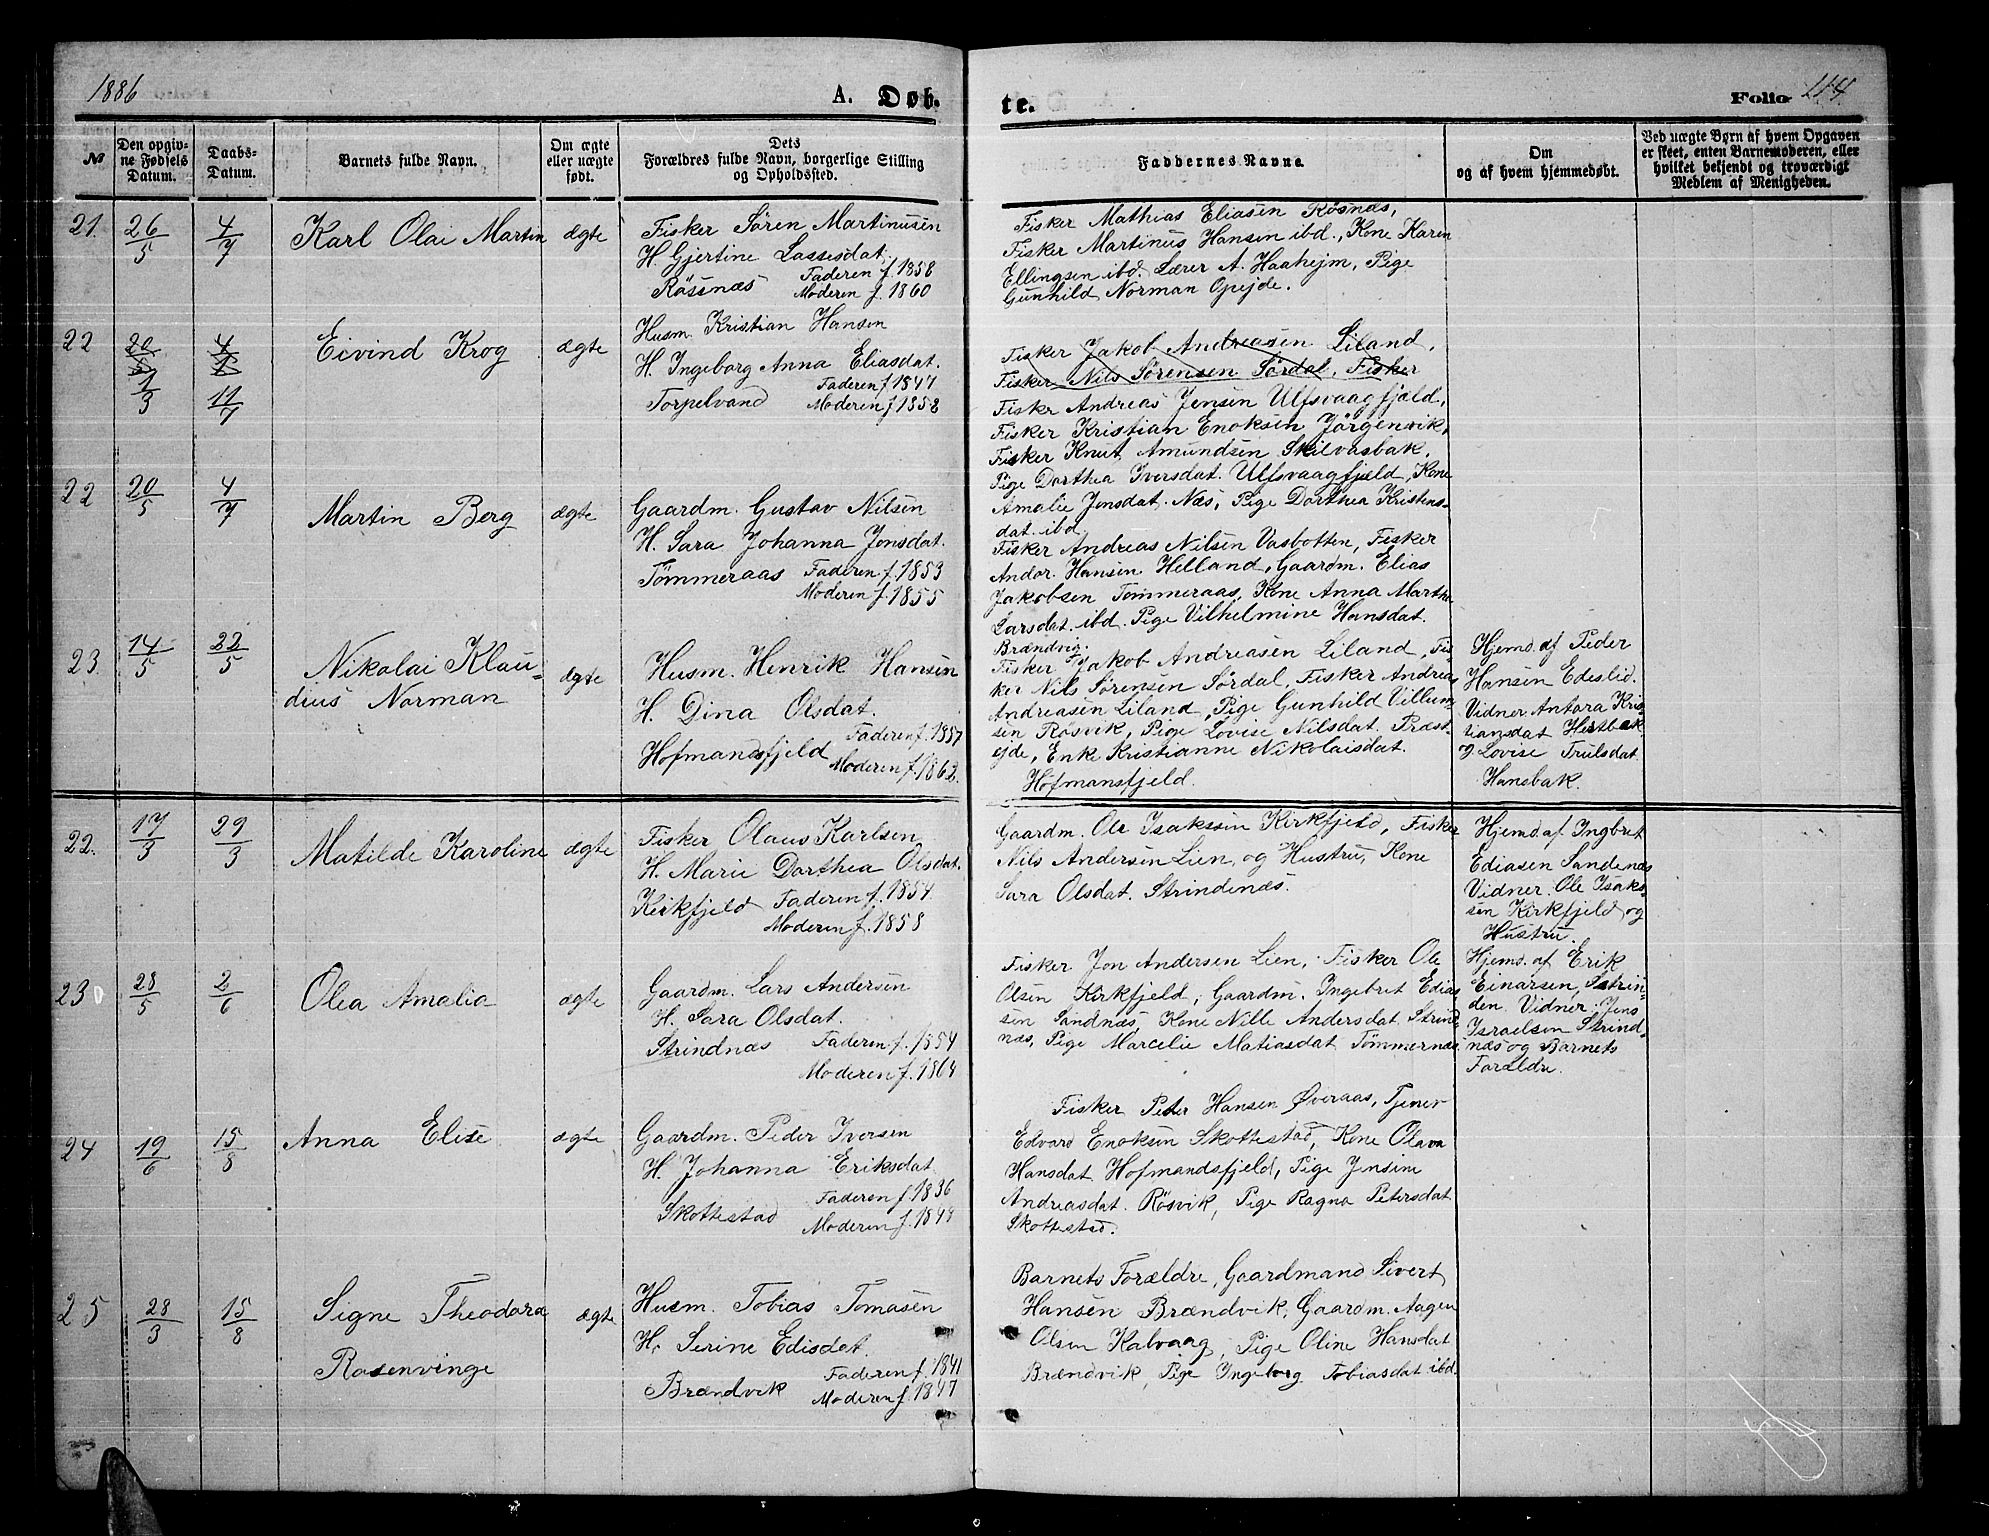 1886
A. Døb-
te.
Folio 114.
No
Den opgiv-
ne Fødsels
Datum.
Daabs-
Datum.
Barnets fulde Navn.
Om ægte
eller uægte
født.
Dets
Forældres fulde Navn, borgerlige Stilling
og Opholdssted.
Faddernes Navne.
Om
og af hvem hjemmedøbt.
Ved uægte Børn af hvem Opgaven
er skeet, enten Barnemoderen, eller
hvilket bekjendt og troværdigt
Medlem af Menigheden.
21. 26/5 4/7 Karl Olai Martin ægte
Fisker Søren Martinusen
H. Gjertine Lassesdat.
Faderen f. 1858
Røssnæs Moderen f. 1860
Fisker Mathias Eliasen Røsnæs,
Fisker Martinus Hansen ibd., Kone Karen
Ellingsen ibd. Lærer A. Haahejm, Pige
Gunhild Norman Opejde.
22 20/5 4/7 Eivind Krog ægte
1/3 11/7
Husm. Kristian Hansen
H. Ingeborg Anna Eliasdat.
Faderen f. 1847
Torpelvand Moderen f. 1858
Fisker Jakob Andreasen Liland,
Fisker Nils Sørensen Sørdal, Fisker
Fisker Andreas Jensen Ulfsvaagfjæld,
Fisker Kristian Enoksen Jørgenvik,
Fisker Knut Amundsen Skilvasbak,
Pige Dorthea Iversdat. Ulfsvaagfjæld, Kone
Amalie Jonsdat. Næs, Pige Dorthea Kristens-
dat. ibd.
22 20/5 4/7 Martin Berg ægte
Gaardm. Gustav Nilsen
H. Sara Johanna Jonsdat.
Tømmeraas Faderen f. 1853
Moderen f. 1855
Fisker Andreas Nilsen Vasbotten, Fisker
Andor. Hansen Helland, Gaardm. Elias
Jakobsen Tømmeraas, Kone Anna Martha
Larsdat. ibd. Pige Vilhelmine Hansdat.
Brændvig.
23. 14/5 22/5 Nikolai Klau-
dius Norman
ægte
Husm. Henrik Hansen
H. Dina Olsdat.
Faderen f. 1857
Hofmandsfjeld Moderen f. 1862.
Fisker Jakob Andreasen Liland, Fis-
ker Nils Sørensen Sørdal, Fisker Andreas
Andreasen Liland, Pige Gunhild Villum-
sen Røsvik, Pige Lovise Nilsdat. Præst-
ejde, Enke Kristianne Nikolaisdat.
Hofmansfjeld.
Hjemd. af Peder
Hansen Edeslid.
Vidner Antora Kris-
tiansdat Hestbak
og Lovise Trulsdat
Hansbak.
22. 17/3 29/3 Matilde Karoline ægte
Fisker Olaus Karlsen
H. Marie Dorthea Olsdat.
Kirkfjeld Faderen f. 1854
Moderen f. 1858
Gaardm. Ole Isakssen Kirkfjeld, Fisker
Nils Andersen Lien, og Hustru, Kone
Sara Olsdat. Strindenæs.
Hjemd af Ingbret
Ediasen Sandenæs
Vidner. Ole Isaks-
sen Kirkfjeld og
Hustru.
23 28/5 2/6 Olea Amalia ægte
Gaardm. Lars Andersen
H. Sara Olsdat.
Strindnæs Faderen f. 1854
Moderen f. 1864
Fisker Jon Andersen Lien, Fisker Ole
Olsen Kirkfjeld, Gaardm. Ingebret Edias
sen Sandnæs, Kone Nille Andersdat. Strind
næs, Pige Marcelie Matiasdat Tømmernæs.
Hjemd. af Erik
Einarsen, Strin-
den. Vidner Jens
Israelsen Strind-
næs og Barnets
Forældre.
24 19/6 15/8 Anna Elise ægte
Gaardm. Peder Iversen
H. Johanna Eriksdat.
Faderen f. 1836
Skottestad Moderen f. 1844
Fisker Peter Hansen Øveraas, Tjener
Edvard Enoksen Skottestad, Kone Olava
Hansdat Hofmandsfjeld, Pige Jensine
Andreasdat. Røsvik, Pige Ragna Petersdat
Skottestad.
25 28/3 15/8 Signe Theodora ægte
Rosenvinge
Husm. Tobias Tomasen
H. Serine Edisdat.
Faderen f. 1841
Brændvik Moderen f. 1847
Barnets Forældre, Gaardmand Sivert
Hansen Brændvik, Gaardm. Aagen
Olsen Kalvaag, Pige Oline Hansdat
Brændvik, Pige Ingeborg Tobiasdat ibd.